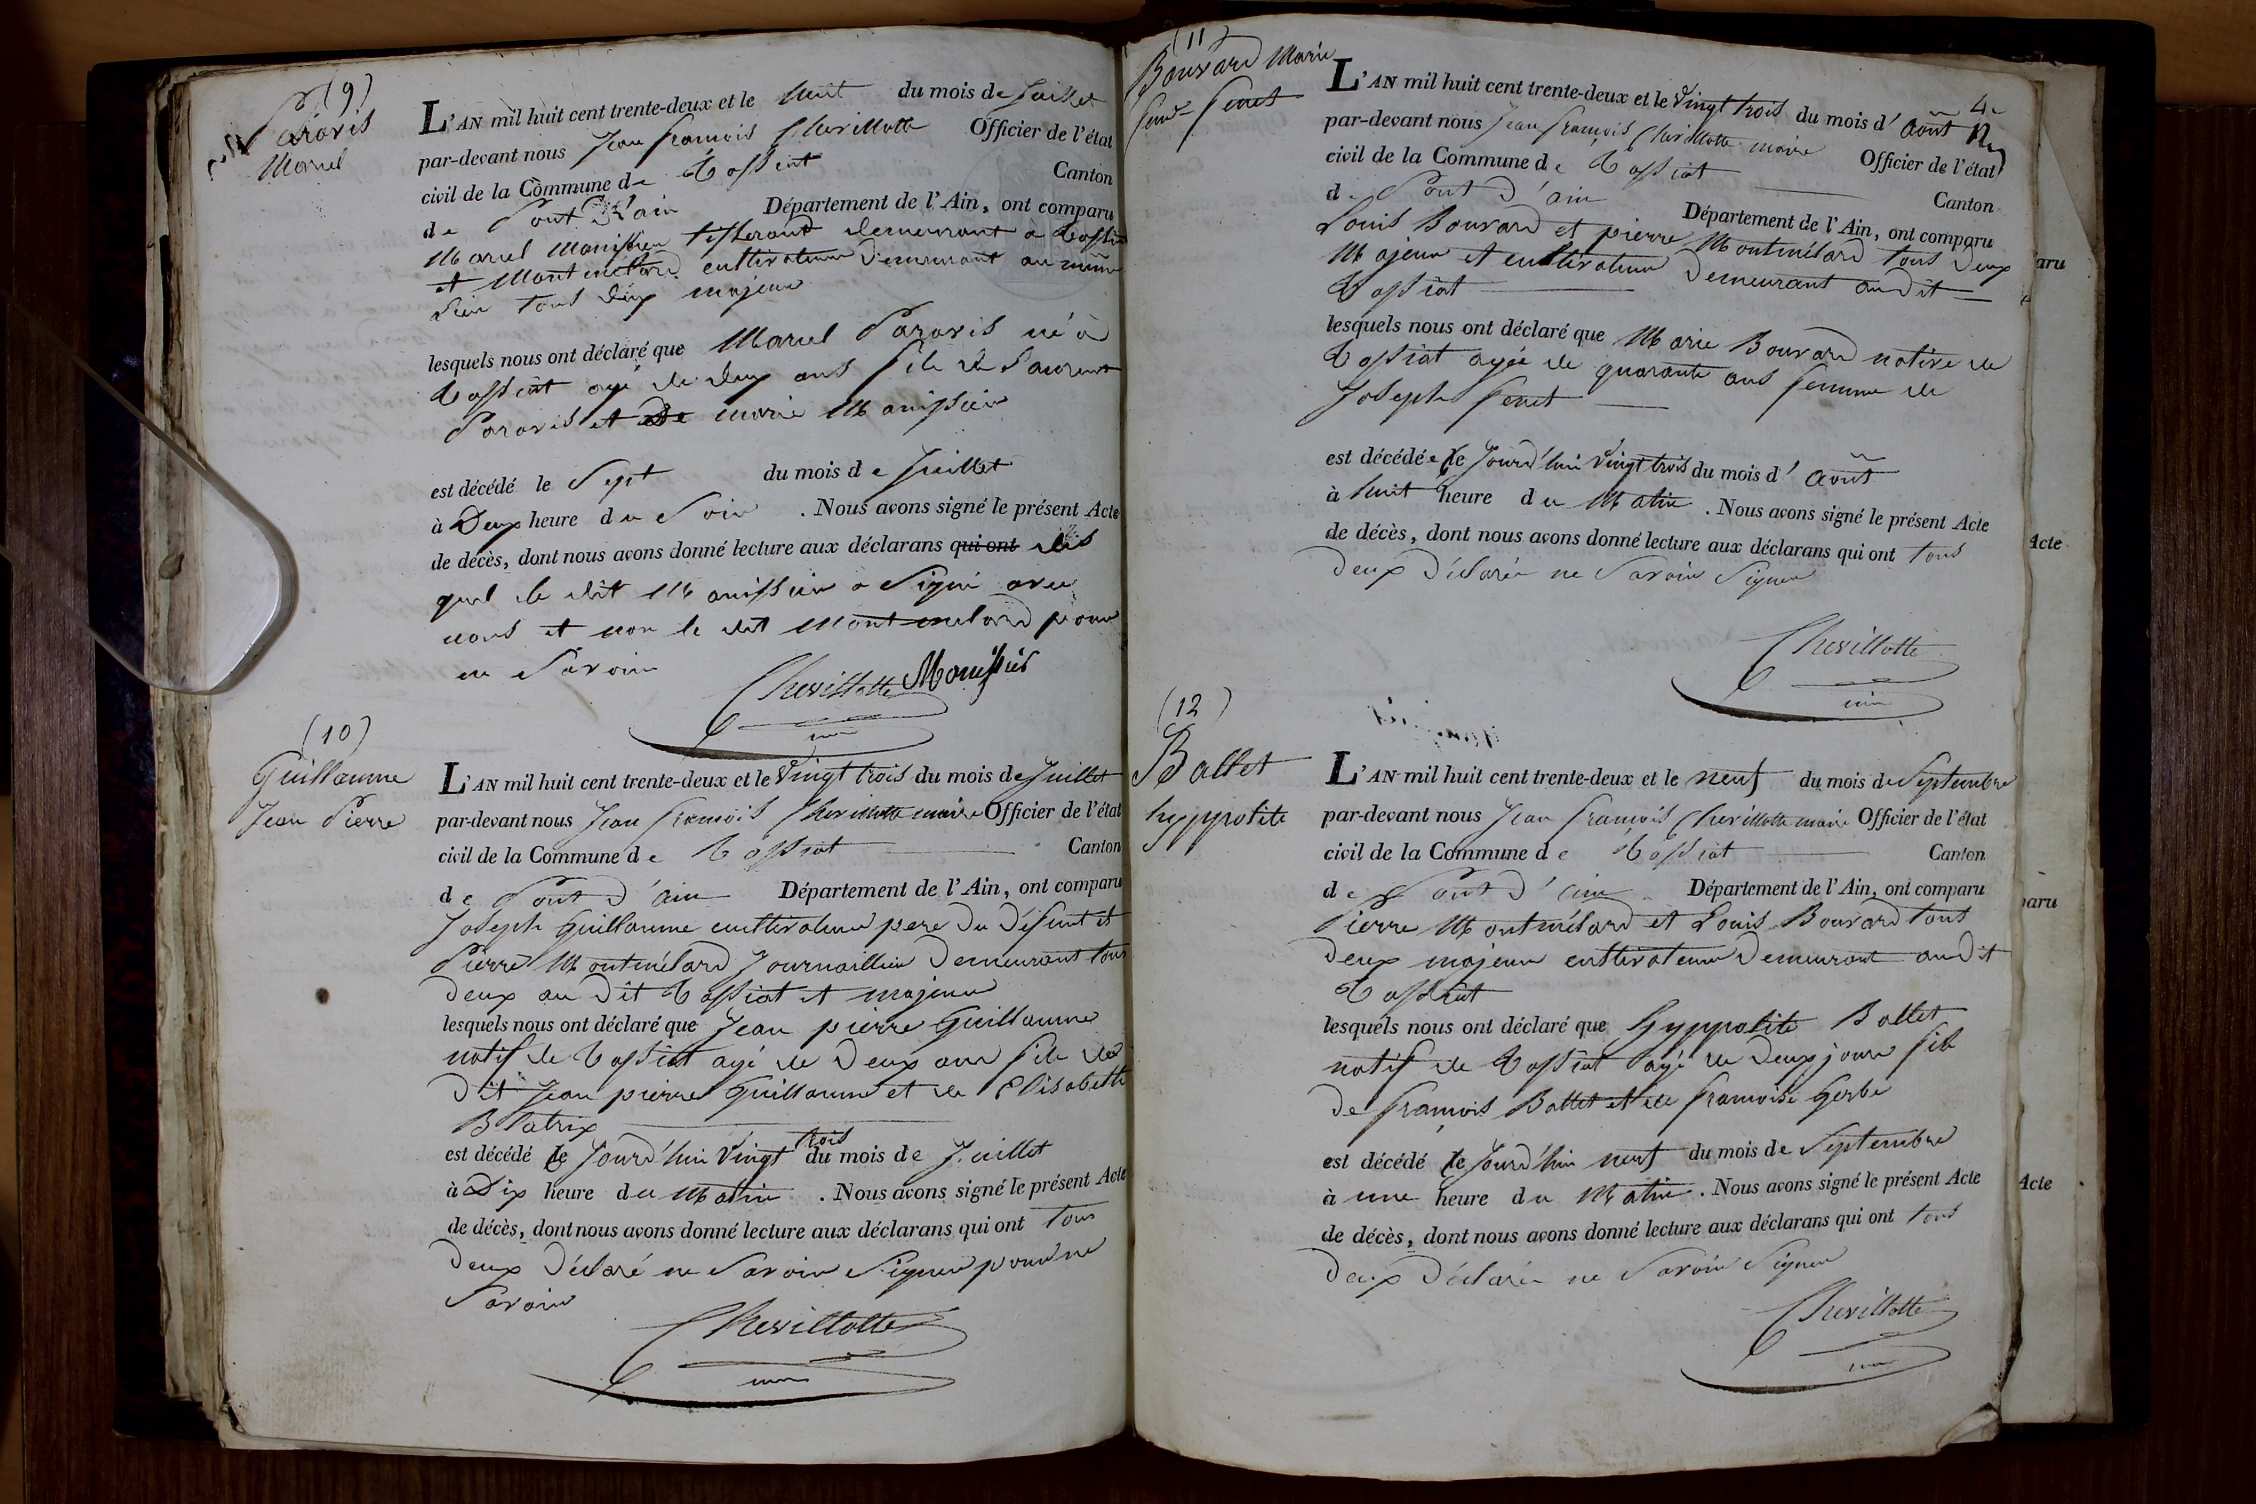 (9)
Pararis
Marcel
L'AN mil huit cent trente-deux et le huit du mois de Juillet
par-devant nous Jean françois Chevillotte Officier de l'état
civil de la Commune de Tossiat Canton
de Pont d'ain Département de l'Ain, ont comparu
Marcel Manissier tisserand demeurant a Tossiat
et Montmélard cultivateur demeurant au même
lieu tous deux majeur
lesquels nous ont déclaré que Marcel Pararis né à
Tossiat agé de deux ans fils de Laurent
Pararis et de marie Manissier
est décédé le Sept du mois de Juillet
à Deux heure du Soir . Nous avons signé le présent Acte
de décès, dont nous avons donné lecture aux déclarans qui ont des
quel le dit Manissier a Signé avec
nous et non le dit Montmelard pour
ne Savoir
Chevillotte Manissier
(10)
Guillaume
Jean Pierre
L'AN mil huit cent trente-deux et le Vingt trois du mois de Juillet
par-devant nous Jean françois Chevillotte maire Officier de l'état
civil de la Commune de Tossiat Canton
de Pont d'ain Département de l'Ain, ont comparu
Joseph Guillaume cultivateur pere du défunt et
Pierre Montmélard Journaillier Demeurant tous
deux au dit Tossiat et majeur
lesquels nous ont déclaré que Jean pierre Guillaume
natif de Tossiat agé de Deux ans fils du
Dit Jean pierre Guillaume et de Elisabeth
Blatrix
est décédé le Jourd'hui Vingt trois du mois de Juillet
à Dix heure du Matin . Nous avons signé le présent Acte
de décès, dont nous avons donné lecture aux déclarans qui ont tous
deux Déclaré ne Savoir Signer pour ne
Savoir
Chevillotte
maire
(11)
Bouvard Marie
femme Genet
L'AN mil huit cent trente-deux et le Vingt trois du mois d'août
par-devant nous Jean françois Chevillotte maire Officier de l'état
civil de la Commune de Tossiat Canton
de Pont D'ain Département de l'Ain, ont comparu
Louis Bouvard et pierre Montmélard tous deux
Majeur et cultivateur Demeurant audit
Tossiat
lesquels nous ont déclaré que Marie Bouvard native de
Tossiat agée de quarante ans femme de
Joseph Genet
est décédée le Jourd'hui Vingt trois du mois d'août
à huit heure du Matin . Nous avons signé le présent Acte
de décès, dont nous avons donné lecture aux déclarans qui ont tous
deux Déclarée ne Savoir Signer
Chevillotte
(12)
Ballet
hyppolite
L'AN mil huit cent trente-deux et le neuf du mois de Septembre
par-devant nous Jean françois Chevillotte maire Officier de l'état
civil de la Commune de Tossiat Canton
de Pont d'ain Département de l'Ain, ont comparu
Pierre Montmélard et Louis Bouvard tous
deux majeur cultivateur Demeurant audit
Tossiat
lesquels nous ont déclaré que hyppolite Ballet
natif de Tossiat agé de deux jours fils
de françois Ballet et de françoise Gerbe
est décédé le Jourd'hui neuf du mois de Septembre
à une heure du Matin . Nous avons signé le présent Acte
de décès, dont nous avons donné lecture aux déclarans qui ont tous
deux Déclarée ne Savoir Signer
Chevillotte
aru
Acte
paru
Acte